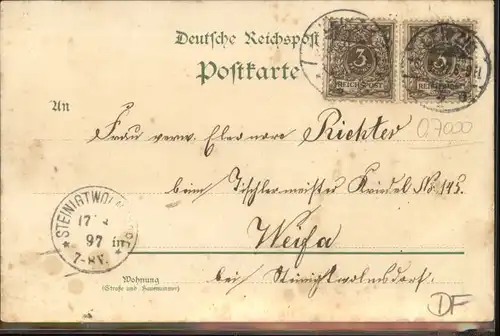 Deutsche Reichspost
Postkarte
3
REICHSPOST
3
REICHSPOST
07000
An
Frau verw. Eleonore Richter
beim Tischlermeister Kriedel No. 145.
in Weifa
bei Steinigtwolmsdorf.
17
97
7-8V.
Wohnung
(Straße und Hausnummer)
DF